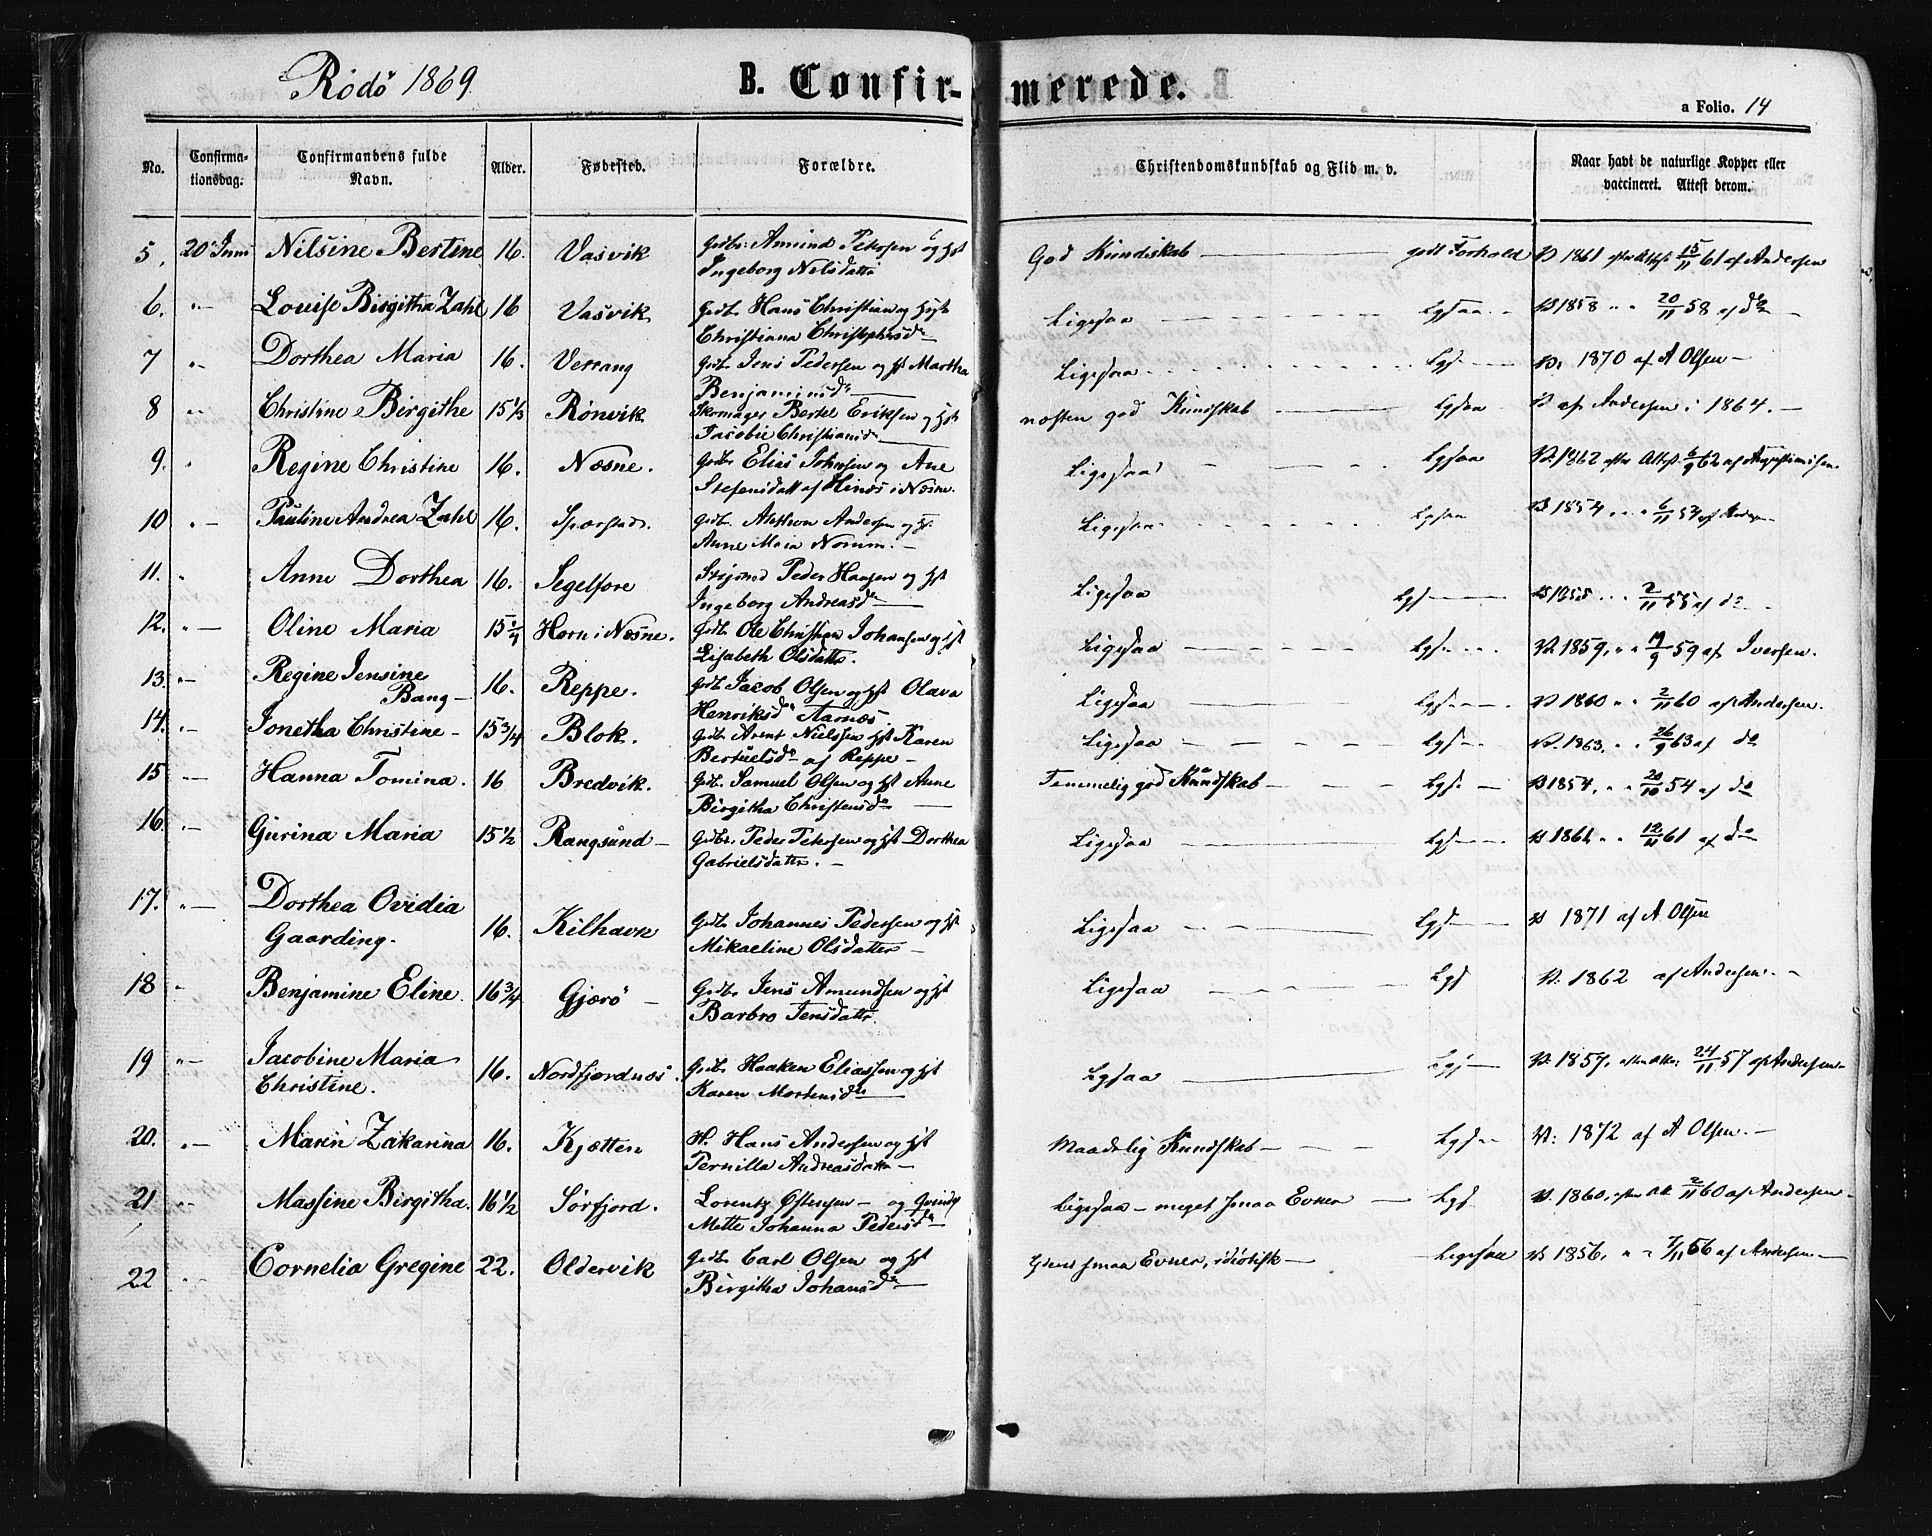 Rödö 1869
B. Confir-
merede.
a Folio. 14
No.
Confirma-
tionsdag.
Confirmandens fulde
Navn.
Alder.
Fødested.
Forældre.
Christendomskundskab og Flid m. v.
Naar havt de naturlige Kopper eller
vaccineret. Attest derom.
5. 20 Juni Nilsine Bertine 16. Vasvik Gdbr: Amund Petersen og Hst
Ingeborg Nilsdattr
God Kundskab godt Forhold V 1861 efter Attest 15/11 61 af Andersen
6. "- Louise Birgitha Zahl 16 Vasvik Gdbr Hans Christian og Hst
Christiana Christophersdr
Ligesaa Lgsaa V 1858 " " 20/11 58 af do
7 "- Dorthea Maria 16. Verrang Gdbr Jens Pedersen og Hst Martha
Benjaminsdr
Ligesaa Lgs V. 1870 af A Olsen
8 "- Christine Birgithe 15 1/3 Rönvik Skomager Bertel Eriksen og Hst
Jacobie Christiansdr
næsten god Kundskab Lgsaa V af Andersen i 1864.
9. " Regine Christine 16. Næsne. Gdbr Elias Johnsen og Ane
Stefensdatt af Hinæs i Næsne.
Ligesaa Lgsaa V. 1862 efter Attest 6/9 62 af Augustinisen
10 "- Pauline Andrea Zahl 16. Gdbr. Anthon Andersen og H.
Anne Maria
Ligesaa Lgsaa V 1854 " " 6/11 54 af Anders
11. " Anne Dorthea 16. Segelfore Peder Hansen og Hst
Ingeborg Andreasdr
Ligesaa Lgs V 1855 2/11 55 af do
12. "- Oline Maria 15 1/4 Horn i Næsne. Gdbr Ole Christian Johansen og Hst
Lisabeth Olsdattr.
Ligesaa Lgs V. 1859. " " 59 af Iversen.
13. "- Regine Jensine
Bang 16. Reppe. Gdbr Jacob Olsen og Hst Olava
Henriksdr Aarnæs
Ligesaa Lgs V 1860 " " 2/11 60 af Andersen.
14. "- Jonetha Christine 15 3/4 Blok. Gdbr Arent Nielsen Hst Karen
Bertuelsdr af Reppe
Ligesaa Lgs V. 1863. " " 26/9 63 af do
15 Hanna Tomina. 16 Bredvik. Gdbr. Samuel Olsen og Hst Anne
Birgitha Christensdr
Temmelig god Kundskab Lgs V 1854. " " 20/10 54 af do
16. "- Gurina Maria 15 1/2 Rangsund Gdbr. Peder Petersen og Hst Dorthea
Gabrielsdattr.
Ligesaa Lgs V 1861 " " 12/11 61 af do
17. "- Dorthea Ovidia
Gaarding. 16. Kilhavn Gdbr Johannes Pedersen og Hst
Mikaeline Olsdatter
Ligesaa Lgs V 1871 af A. Olsen
18 " Benjamine Eline. 16 3/4 Gjærö Gdbr Jens Amundsen og Hst
Barbro Jensdattr.
Ligesaa Lgs V. 1862 af Andersen.
19 "- Jacobine Maria
Christine. 16. Nordfjordnæs. Gdbr Haaken Eliassen og Hst
Karen Mortensdr
Lgsaa Lgs V. 1857. efter Atte: 24/11 57 af Andersen
20. "- Maren Zakarina 16. Kjætten H. Hans Andersen og Hst
Pernilla Andreasdattr
Maadelig Kundskab Lgs V: 1872 af A Olsen.
21 "- Massine Birgitha. 16 1/2 Sörfjord. Lorentz Östensen og Qvinde
Mette Johanna Pedersdr
Ligesaa - meget smaa Evner Lgs V. 1860. efter Att 2/11 60 af Andersen
22 "- Cornelia Gregine 22. Oldervik Gdbr Carl Olsen og Hst
Birgitha Johansdr
smaa Evner, idiotisk Ligesaa V 1856. " " 7/11 56 af Andersen.